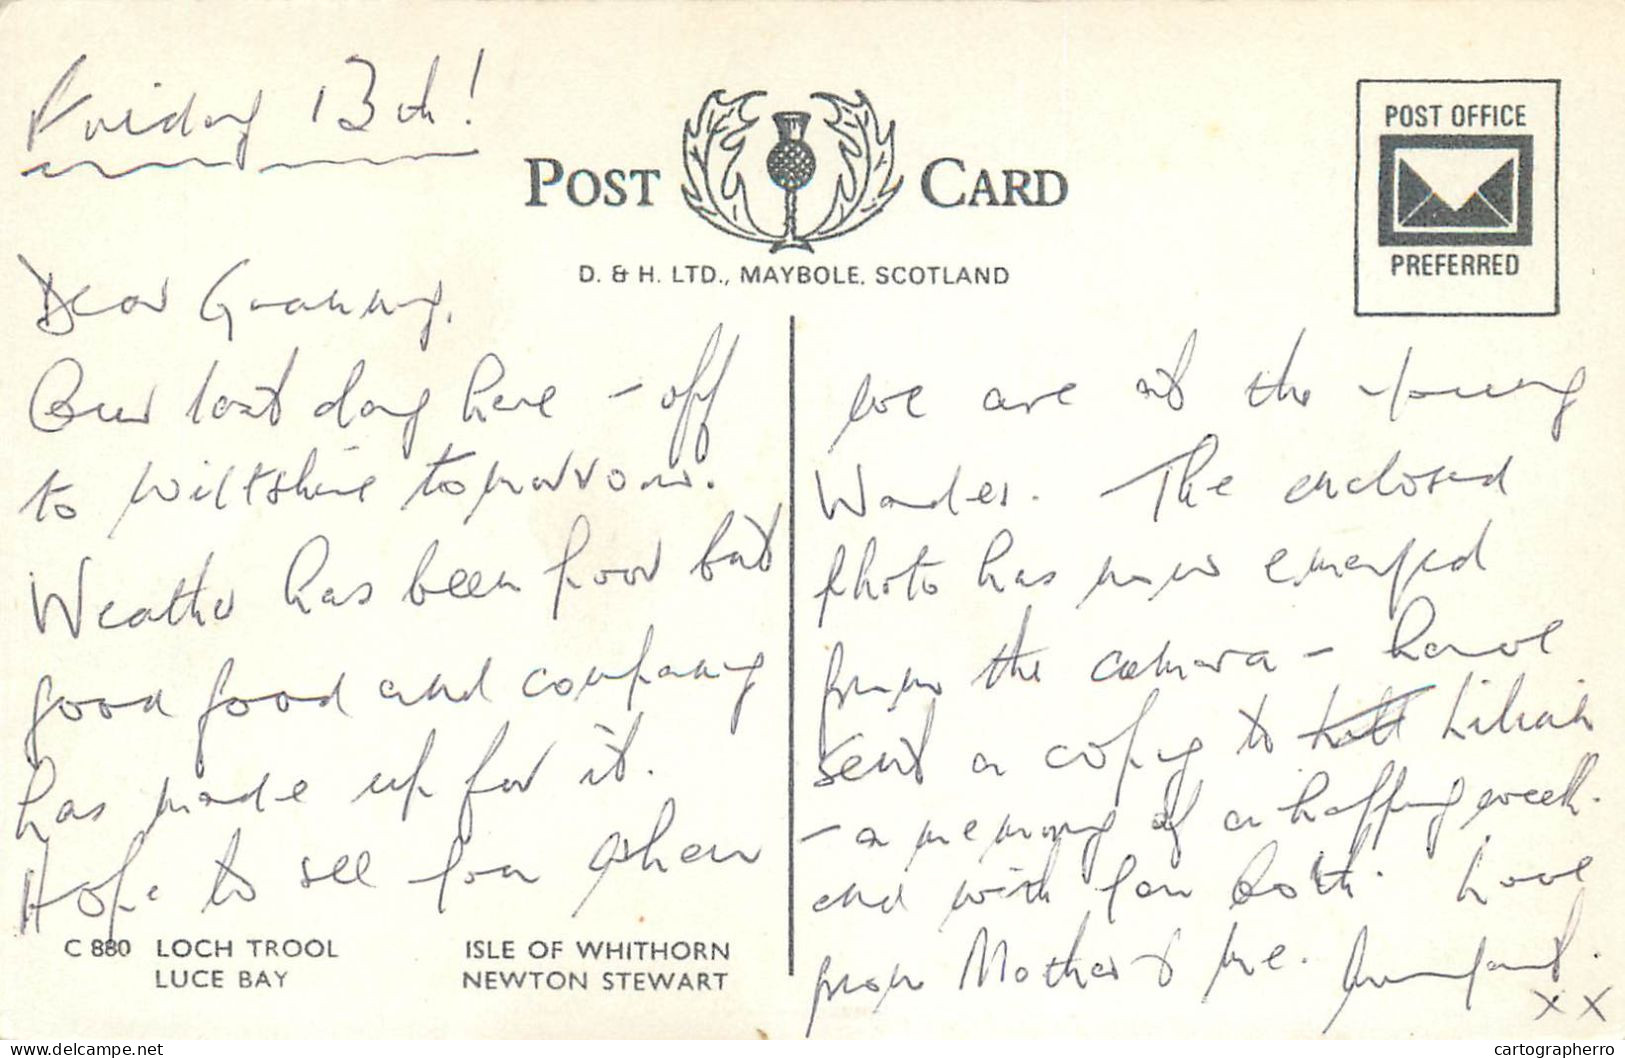 Friday 13th!
POST CARD
D. & H. LTD., MAYBOLE. SCOTLAND
POST OFFICE
PREFERRED
Dear Granny,
Our last day here - off
to Wiltshire tomorrow.
Weather has been poor but
good food and company
has made up for it.
Hope to see you when
we are at the young
Wades. The enclosed
photo has now emerged
from the camera - have
sent a copy to Lilian
- a memory of a happy week.
and with you both. Love
from Mother & me.
X X
C 880 LOCH TROOL
LUCE BAY
ISLE OF WHITHORN
NEWTON STEWART
delcampe.net
cartographerro